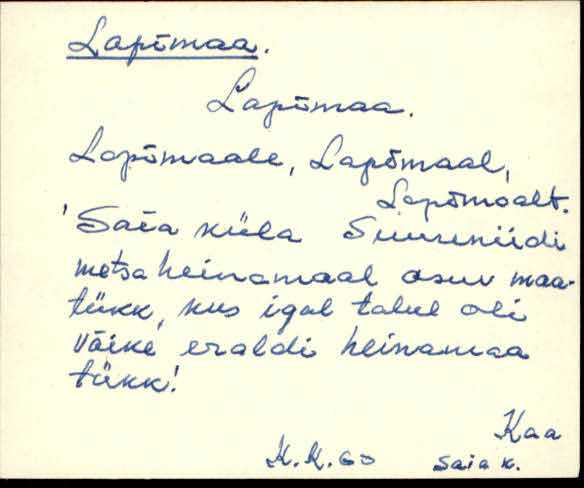 Lapimaa.
Lapimaa.
Lapimaale, Lapimaal,
Lapimaalt.
'Saia küla Suureniidi
metsa heinamaal asuv maa-
tükk, kus igal talul oli
väike eraldi heinamaa
tükk!
Kaa
K.K. 60 Saia k.